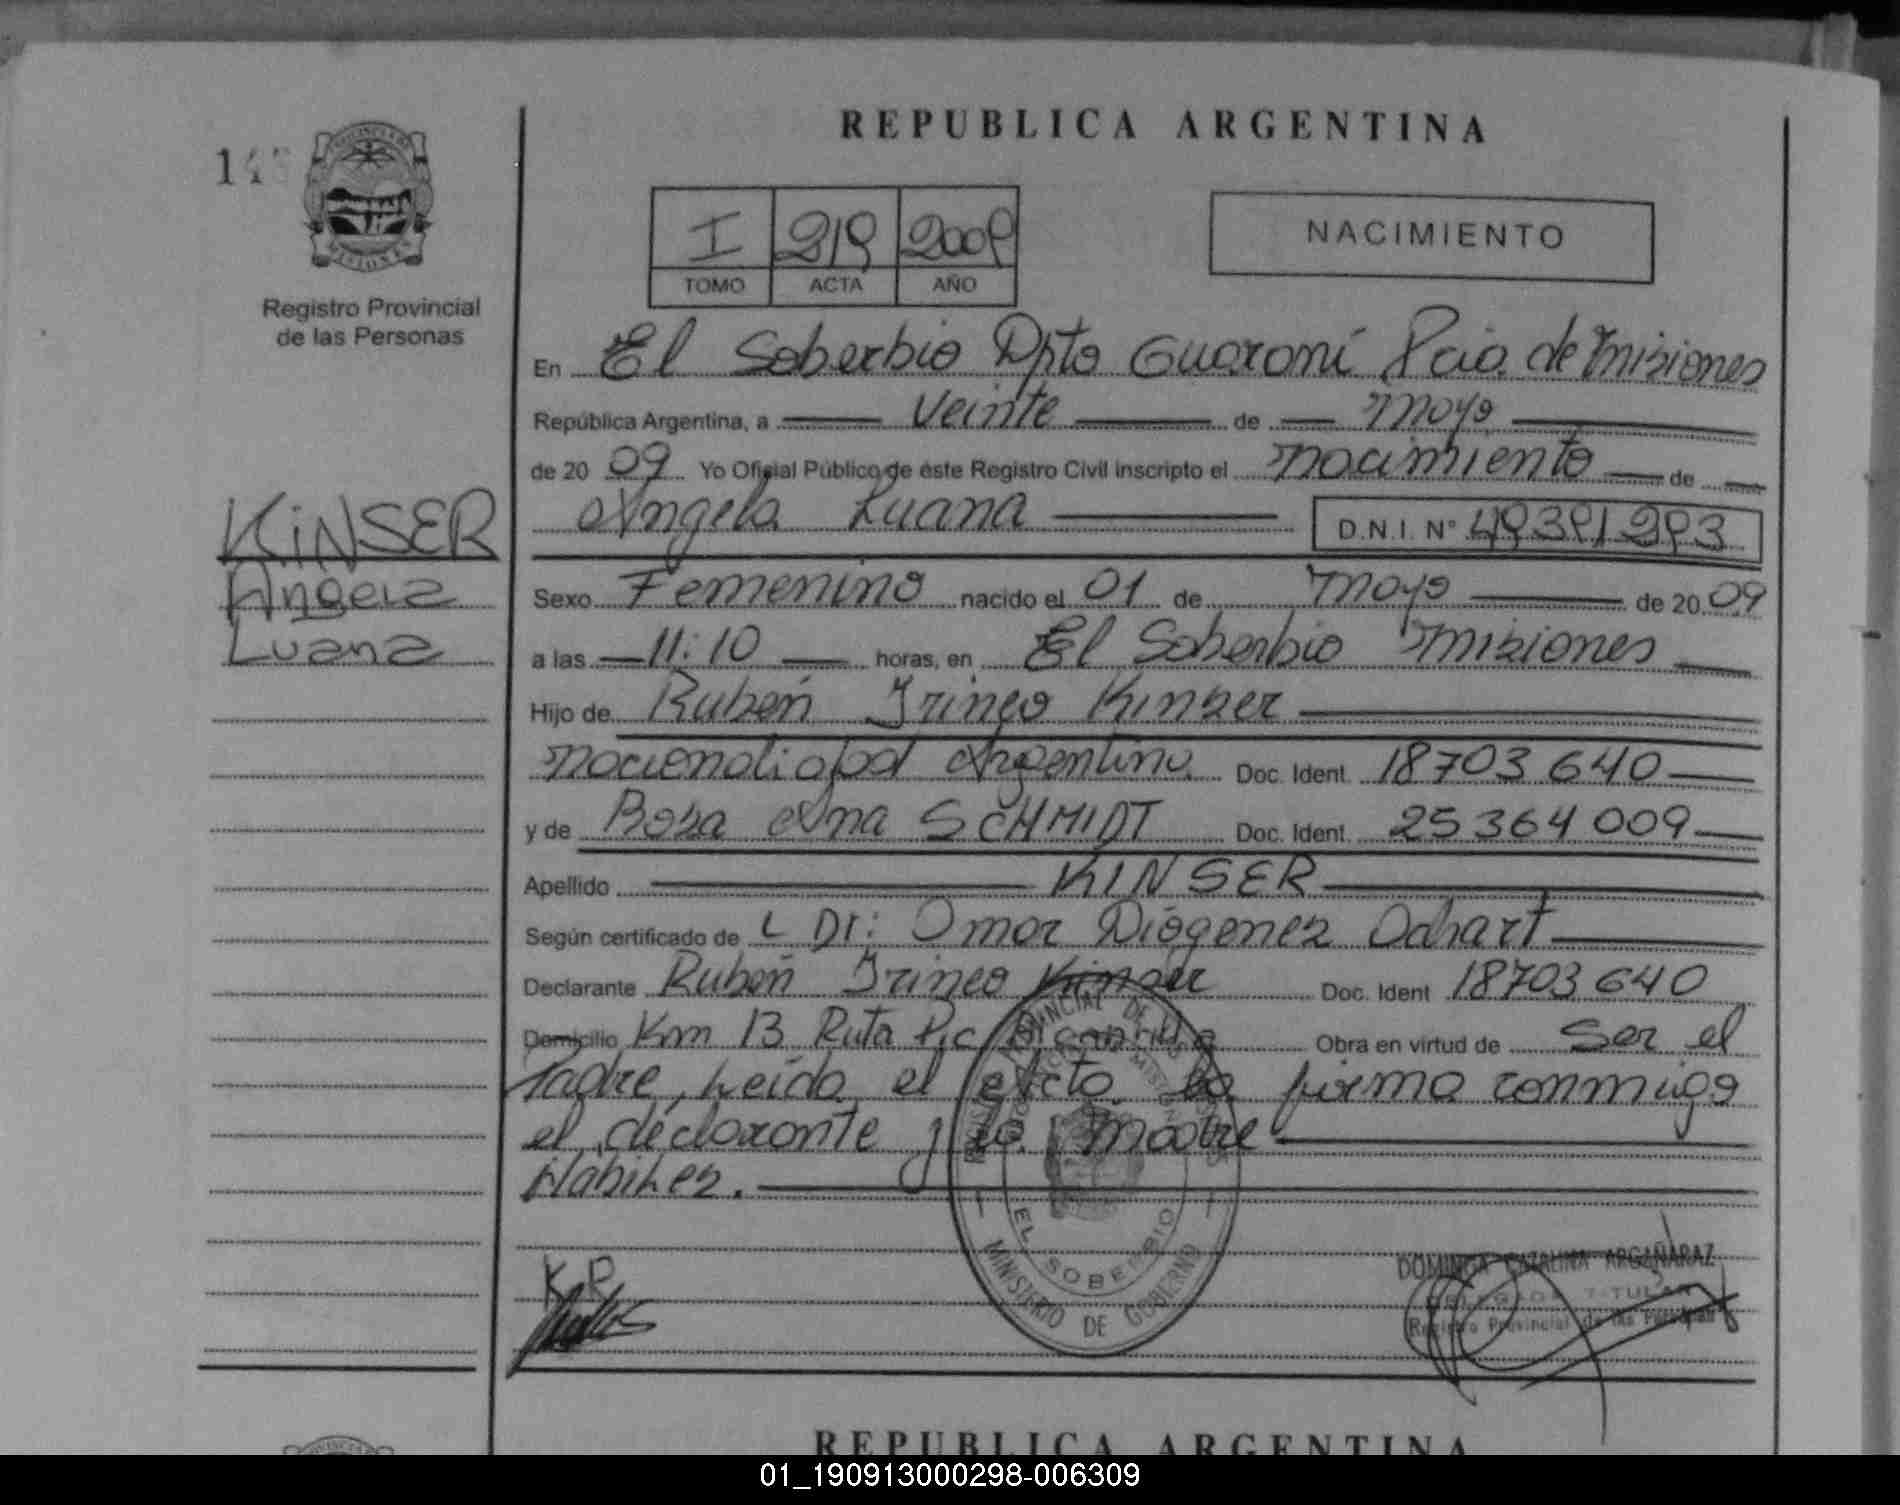 REPUBLICA ARGENTINA
14
MISIONES
Registro Provincial
de las Personas
I 219 2009
TOMO ACTA AÑO
NACIMIENTO
En El Soberbio Dpto Guaraní Pcia. de Misiones
República Argentina, a Veinte de Mayo
de 20 09 Yo Oficial Público de éste Registro Civil inscripto el nacimiento de
Angela Luana D.N.I. Nº 49391293
KINSER
Angela
Luana
Sexo Femenino nacido el 01 de Mayo de 20 09
a las 11:10 horas, en El Soberbio Misiones
Hijo de Rubén Irineo Kinser
nacionalidad Argentina Doc. Ident. 18703 640
y de Rosa Ana SCHMIDT Doc. Ident. 25 364 009
Apellido KINSER
Según certificado de L DI: Omar Diógenes Odhart
Declarante Rubén Irineo Kinser Doc. Ident 18703 640
Domicilio Km 13 Ruta Obra en virtud de Ser el
Padre, Leída el acta la firma conmigo
el declarante y la Madre
Hábiles.
EL SOBERBIO
MINISTERIO DE GOBIERNO
K.R
DOMINGA CATALINA ARGAÑARAZ
DELEGADA TITULAR
Registro Provincial de las Personas
REPUBLICA ARGENTINA
01_190913000298-006309